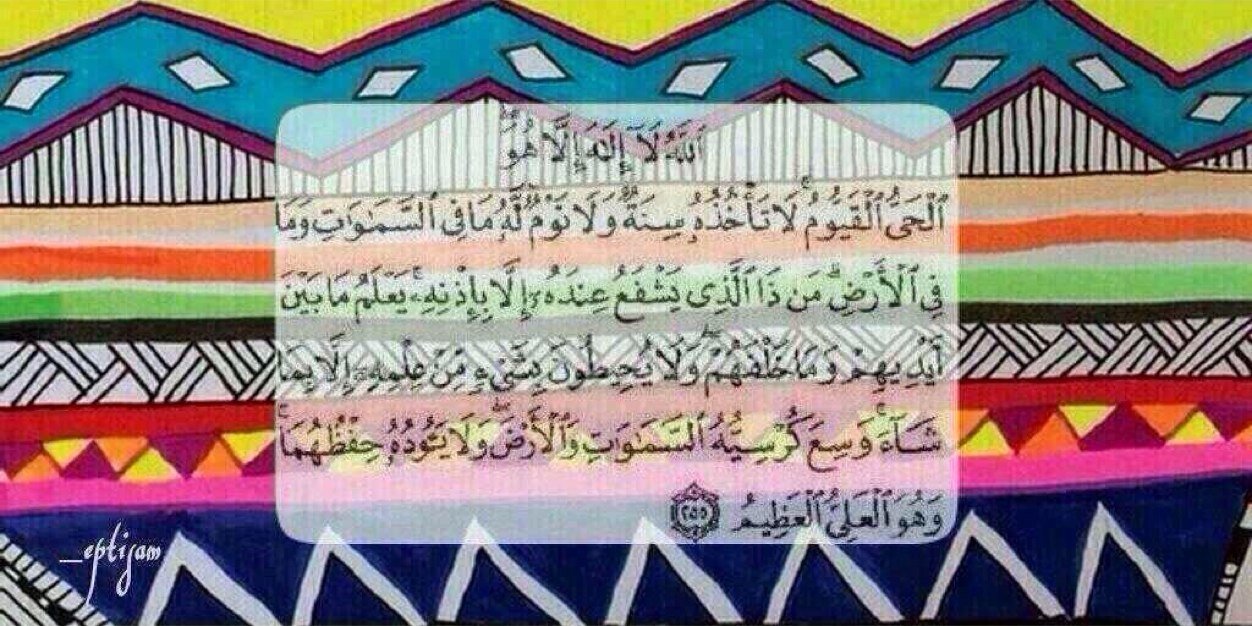 ٱللَّهُ لَآ إِلَٰهَ إِلَّا هُوَ
ٱلْحَىُّ ٱلْقَيُّومُ ۚ لَا تَأْخُذُهُۥ سِنَةٌ وَلَا نَوْمٌ ۚ لَّهُۥ مَا فِى ٱلسَّمَٰوَٰتِ وَمَا
فِى ٱلْأَرْضِ ۗ مَن ذَا ٱلَّذِى يَشْفَعُ عِندَهُۥٓ إِلَّا بِإِذْنِهِۦ ۚ يَعْلَمُ مَا بَيْنَ
أَيْدِيهِمْ وَمَا خَلْفَهُمْ ۖ وَلَا يُحِيطُونَ بِشَىْءٍ مِّنْ عِلْمِهِۦٓ إِلَّا بِمَا
شَآءَ ۚ وَسِعَ كُرْسِيُّهُ ٱلسَّمَٰوَٰتِ وَٱلْأَرْضَ ۖ وَلَا يَـُٔودُهُۥ حِفْظُهُمَا ۚ
وَهُوَ ٱلْعَلِىُّ ٱلْعَظِيمُ ٢٥٥
_eptijam